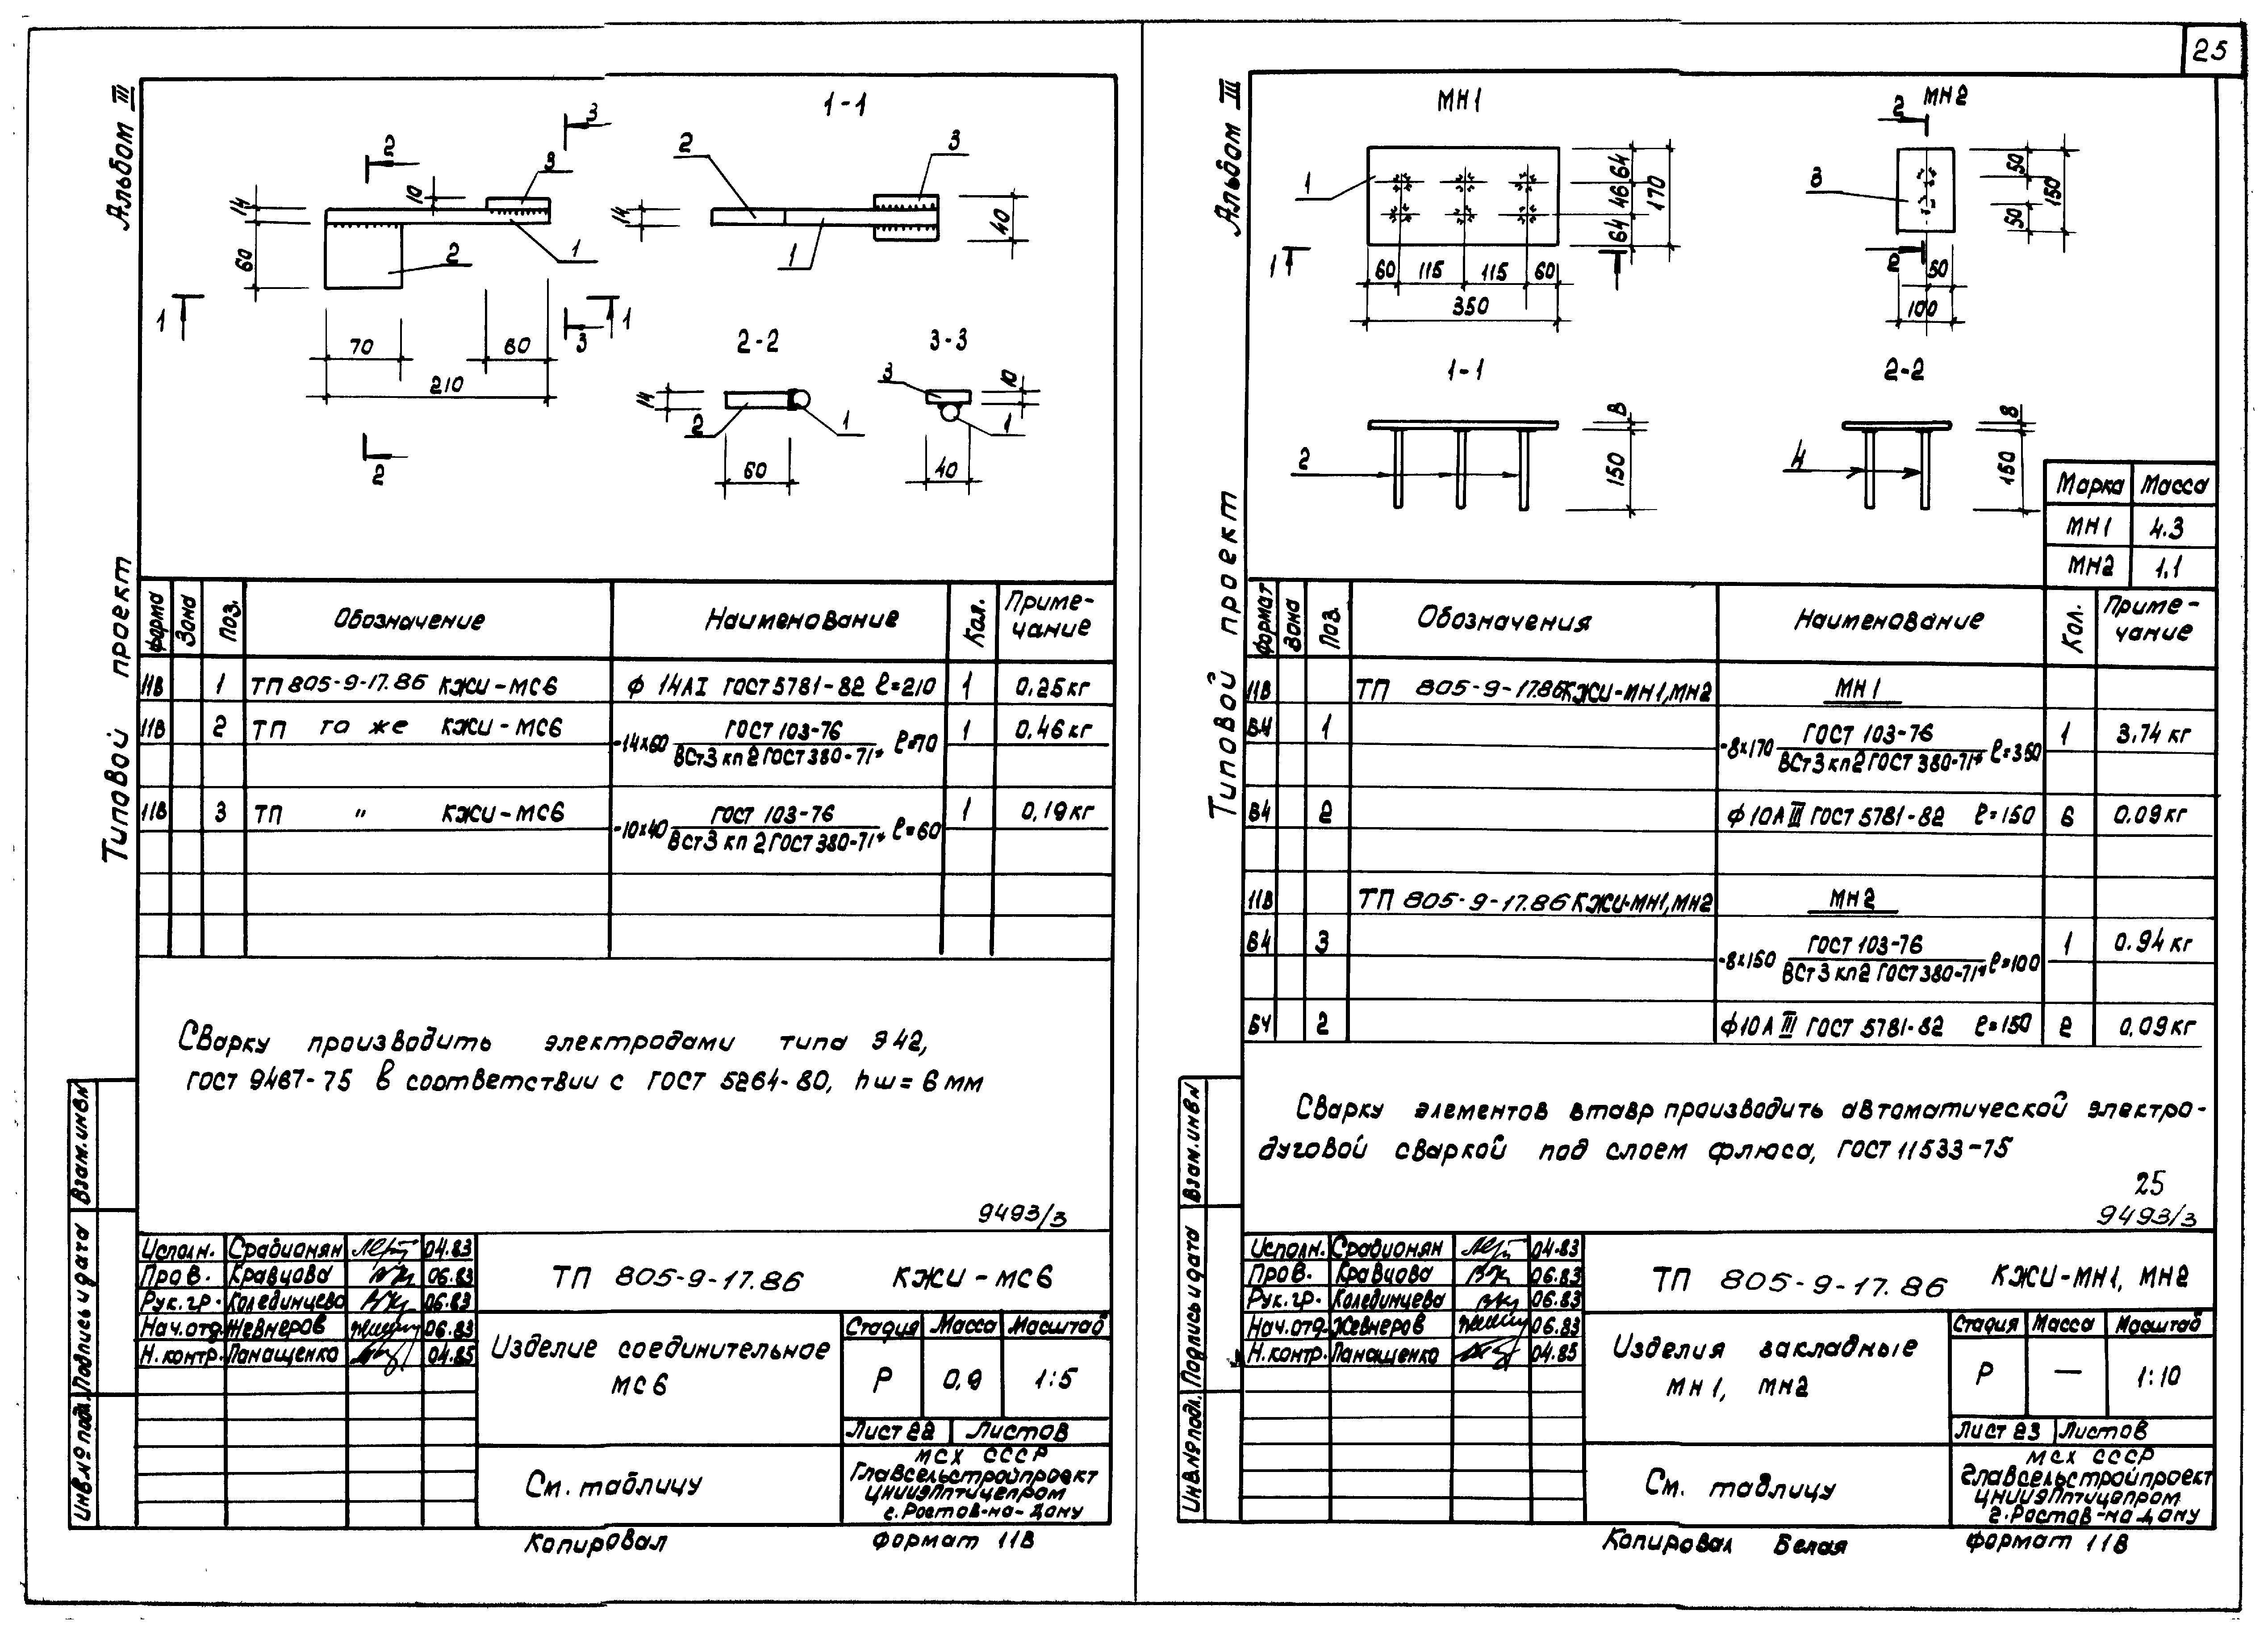 25
Альбом III
Типовой проект
1-1
3
2
3
2
3
10
14
14
40
60
2
1
1
1
1
3
70
60
210
2
2-2
3-3
14
2
1
60
3
10
1
40
Форма
Зона
Поз.
Обозначение
Наименование
Кол.
Приме-
чание
11В 1 ТП 805-9-17.86 КЖИ-МС6 ф 14АI ГОСТ 5781-82 ℓ=210 1 0,25кг
11В 2 ТП то же КЖИ-МС6 -14х60 ГОСТ 103-76 ℓ=70 1 0,46кг
ВСт3 кп2 ГОСТ 380-71*
11В 3 ТП " КЖИ-МС6 -10х40 ГОСТ 103-76 ℓ=60 1 0,19кг
ВСт3 кп 2 ГОСТ 380-71*
Сварку производить электродами типа Э42,
ГОСТ 9467-75 в соответствии с ГОСТ 5264-80, hш=6мм
9493/3
Взам.инвN
Подпись и дата
Инв.№ подл.
Исполн. Срабионян 04.83
Пров. Кравцова 06.83
Рук.гр. Колединцева 06.83
Нач.отд. Жевнеров 06.83
Н.контр. Панащенко 04.85
ТП 805-9-17.86 КЖИ-МС6
Изделие соединительное
МС6
Стадия Масса Масштаб
Р 0,9 1:5
Лист 22 Листов
См. таблицу
МСХ СССР
Главсельстройпроект
ЦНИИЭПптицепром
г. Ростов-на-Дону
Копировал Формат 11В
Альбом III
Типовой проект
МН1
МН2
1
64
46
64
170
60 115 115 60
350
1
2
3
50
50
150
2
50
100
1-1
2-2
2
8
150
4
8
150
Марка Масса
МН1 4.3
МН2 1,1
Формат
Зона
Поз.
Обозначения
Наименование
Кол.
Приме-
чание
11В ТП 805-9-17.86 КЖИ-МН1,МН2 МН1
Б4 1 -8х170 ГОСТ 103-76 ℓ=350 1 3,74 кг
ВСт3 кп2 ГОСТ 380-71*
Б4 2 ф10АIII ГОСТ 5781-82 ℓ=150 6 0,09кг
11В ТП 805-9-17.86 КЖИ-МН1,МН2 МН2
Б4 3 -8х150 ГОСТ 103-76 ℓ=100 1 0.94 кг
ВСт3 кп2 ГОСТ 380-71*
Б4 2 ф10АIII ГОСТ 5781-82 ℓ=150 2 0,09кг
Сварку элементов втавр производить автоматической электро-
дуговой сваркой под слоем флюса, ГОСТ 11533-75
25
9493/3
Взам.инвN
Подпись и дата
Инв.№ подл.
Исполн. Срабионян 04.83
Пров. Кравцова 06.83
Рук.гр. Колединцева 06.83
Нач.отд. Жевнеров 06.83
Н.контр. Панащенко 04.85
ТП 805-9-17.86 КЖИ-МН1, МН2
Изделия закладные
МН1, МН2
Стадия Масса Масштаб
Р — 1:10
Лист 23 Листов
См. таблицу
МСХ СССР
Главсельстройпроект
ЦНИИЭПптицепром
г. Ростов-на Дону
Копировал Белая Формат 11В